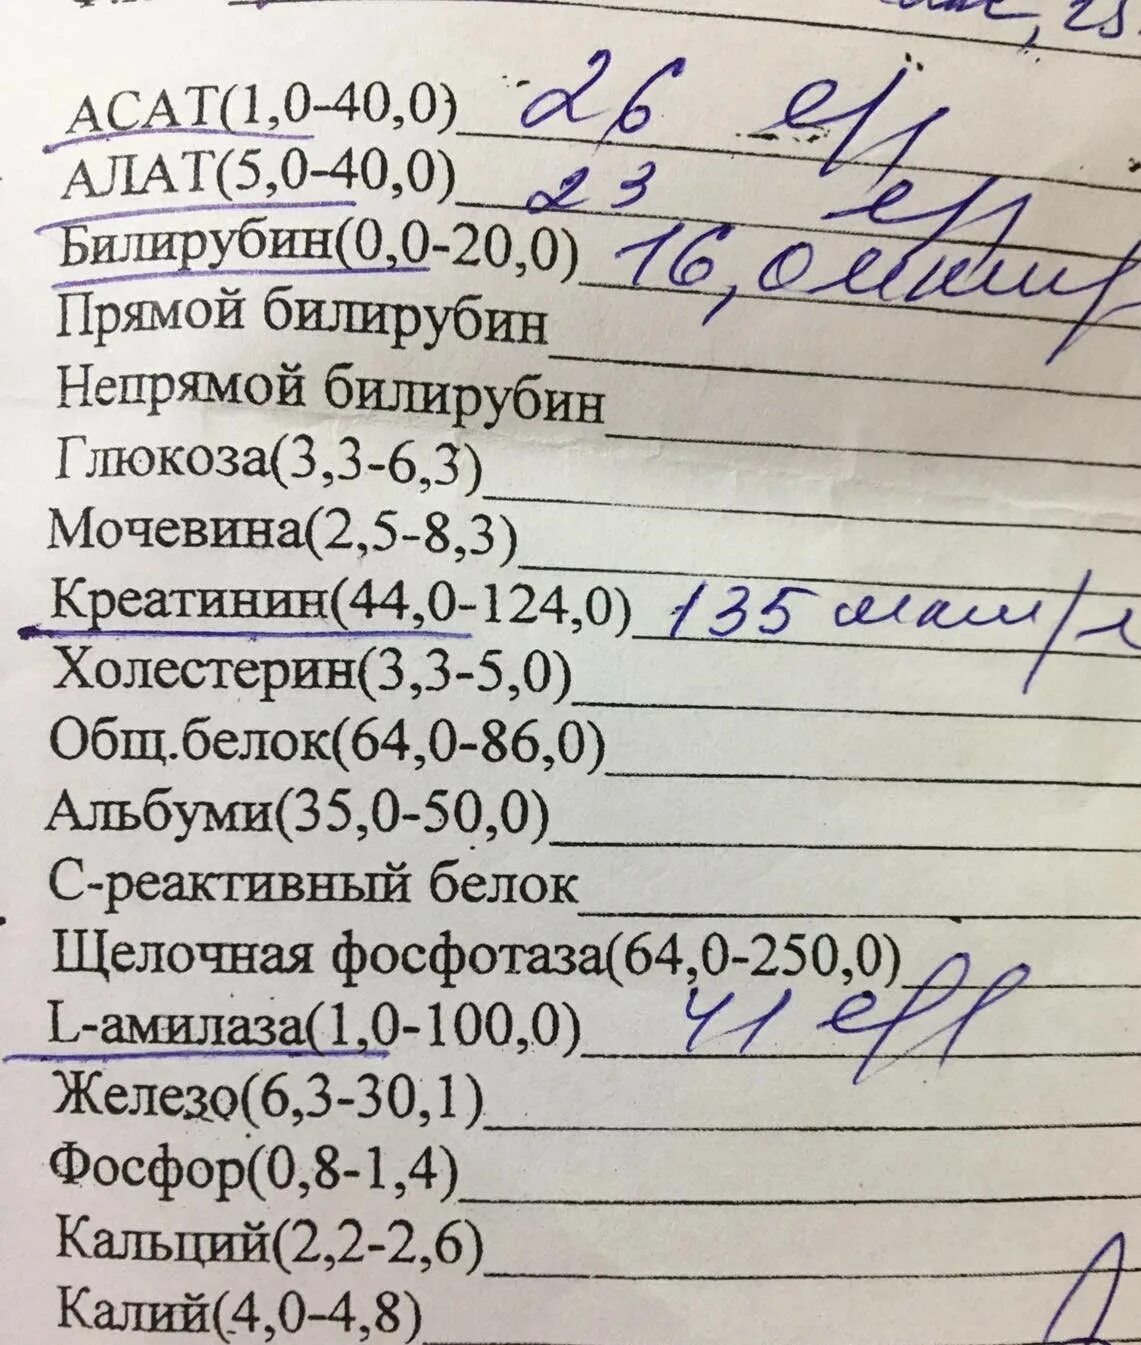 АСАТ(1,0-40,0) 26 е/л
АЛАТ(5,0-40,0) 23 е/л
Билирубин(0,0-20,0) 16,0 мкмл/
Прямой билирубин
Непрямой билирубин
Глюкоза(3,3-6,3)
Мочевина(2,5-8,3)
Креатинин(44,0-124,0) 135 мкмл/л
Холестерин(3,3-5,0)
Общ.белок(64,0-86,0)
Альбуми(35,0-50,0)
С-реактивный белок
Щелочная фосфотаза(64,0-250,0)
L-амилаза(1,0-100,0) 41 е/л
Железо(6,3-30,1)
Фосфор(0,8-1,4)
Кальций(2,2-2,6)
Калий(4,0-4,8)